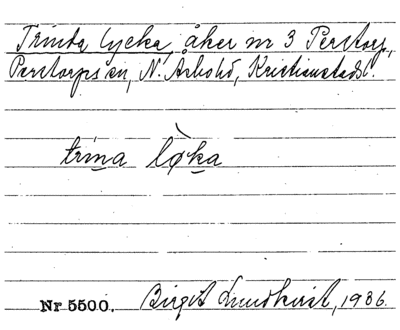 Trinda lycka, åker nr 3 Perstorp,
Perstorps sn, N. Åsbohd, Kristianstadsl.
trina løka
Nr 5500. Birgit Lundkvist, 1936.